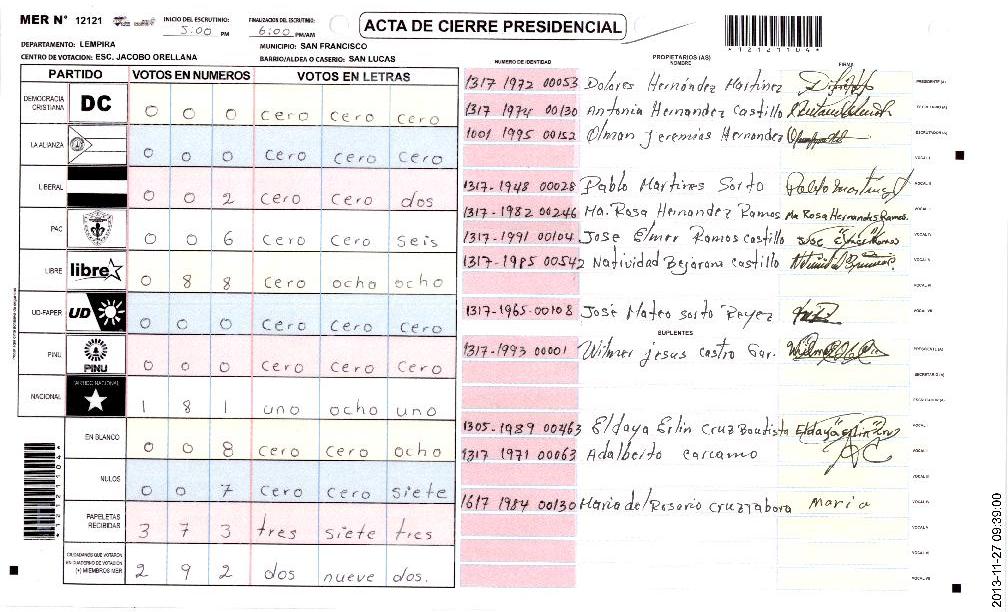 MER N° 12121
INICIO DEL ESCRUTINIO: 5:00 PM
FINALIZACION DEL ESCRUTINIO: 6:00 PM/AM
ACTA DE CIERRE PRESIDENCIAL
*12121104*
DEPARTAMENTO: LEMPIRA
MUNICIPIO: SAN FRANCISCO
CENTRO DE VOTACION: ESC. JACOBO ORELLANA
BARRIO/ALDEA O CASERIO: SAN LUCAS
PARTIDO VOTOS EN NUMEROS VOTOS EN LETRAS
DEMOCRACIA CRISTIANA DC 0 0 0 cero cero cero
LA ALIANZA 0 0 0 cero cero cero
LIBERAL 0 0 2 cero cero dos
PAC 0 0 6 cero cero seis
LIBRE libre 0 8 8 cero ocho ocho
UD-FAPER UD 0 0 0 cero cero cero
PINU PINU 0 0 0 cero cero cero
NACIONAL PARTIDO NACIONAL 1 8 1 uno ocho uno
EN BLANCO 0 0 8 cero cero ocho
NULOS 0 0 7 cero cero siete
PAPELETAS RECIBIDAS 3 7 3 tres siete tres
CIUDADANOS QUE VOTARON EN CUADERNO DE VOTACION (+) MIEMBROS MER 2 9 2 dos nueve dos.
NUMERO DE IDENTIDAD PROPIETARIOS (AS) NOMBRE FIRMA
1317 1972 00053 Dolores Hernández Martinez PRESIDENTE (A)
1317 1974 00130 Antonia Hernandez Castillo SECRETARIO (A)
1001 1995 00152 Olman Jeremias Hernandez ESCRUTADOR (A)
VOCAL I
1317-1948 00028 Pablo Martines Sorto Pablo Martinez VOCAL II
1317-1982 00246 Ma. Rosa Hernandez Ramos Ma Rosa Hernandes Ramos. VOCAL III
1317-1991 00104 Jose Elmer Ramos castillo VOCAL IV
1317-1985 00542 Natividad Bejarano castillo VOCAL V
VOCAL VI
1317-1965-00108 José Mateo sorto Reyez VOCAL VII
SUPLENTES
1317-1993 00001 Wilmer jesus castro Gar. PRESIDENTE (A)
SECRETARIO (A)
ESCRUTADOR (A)
1305-1989 00463 Eldaya Erlin Cruz Bautista VOCAL I
1317 1971 00063 Adalberto carcamo AC VOCAL II
VOCAL III
1617 1984 00130 Maria del Rosario cruz tabora Maria VOCAL IV
VOCAL V
VOCAL VI
VOCAL VII
*12121104*
2013-11-27 09:39:00